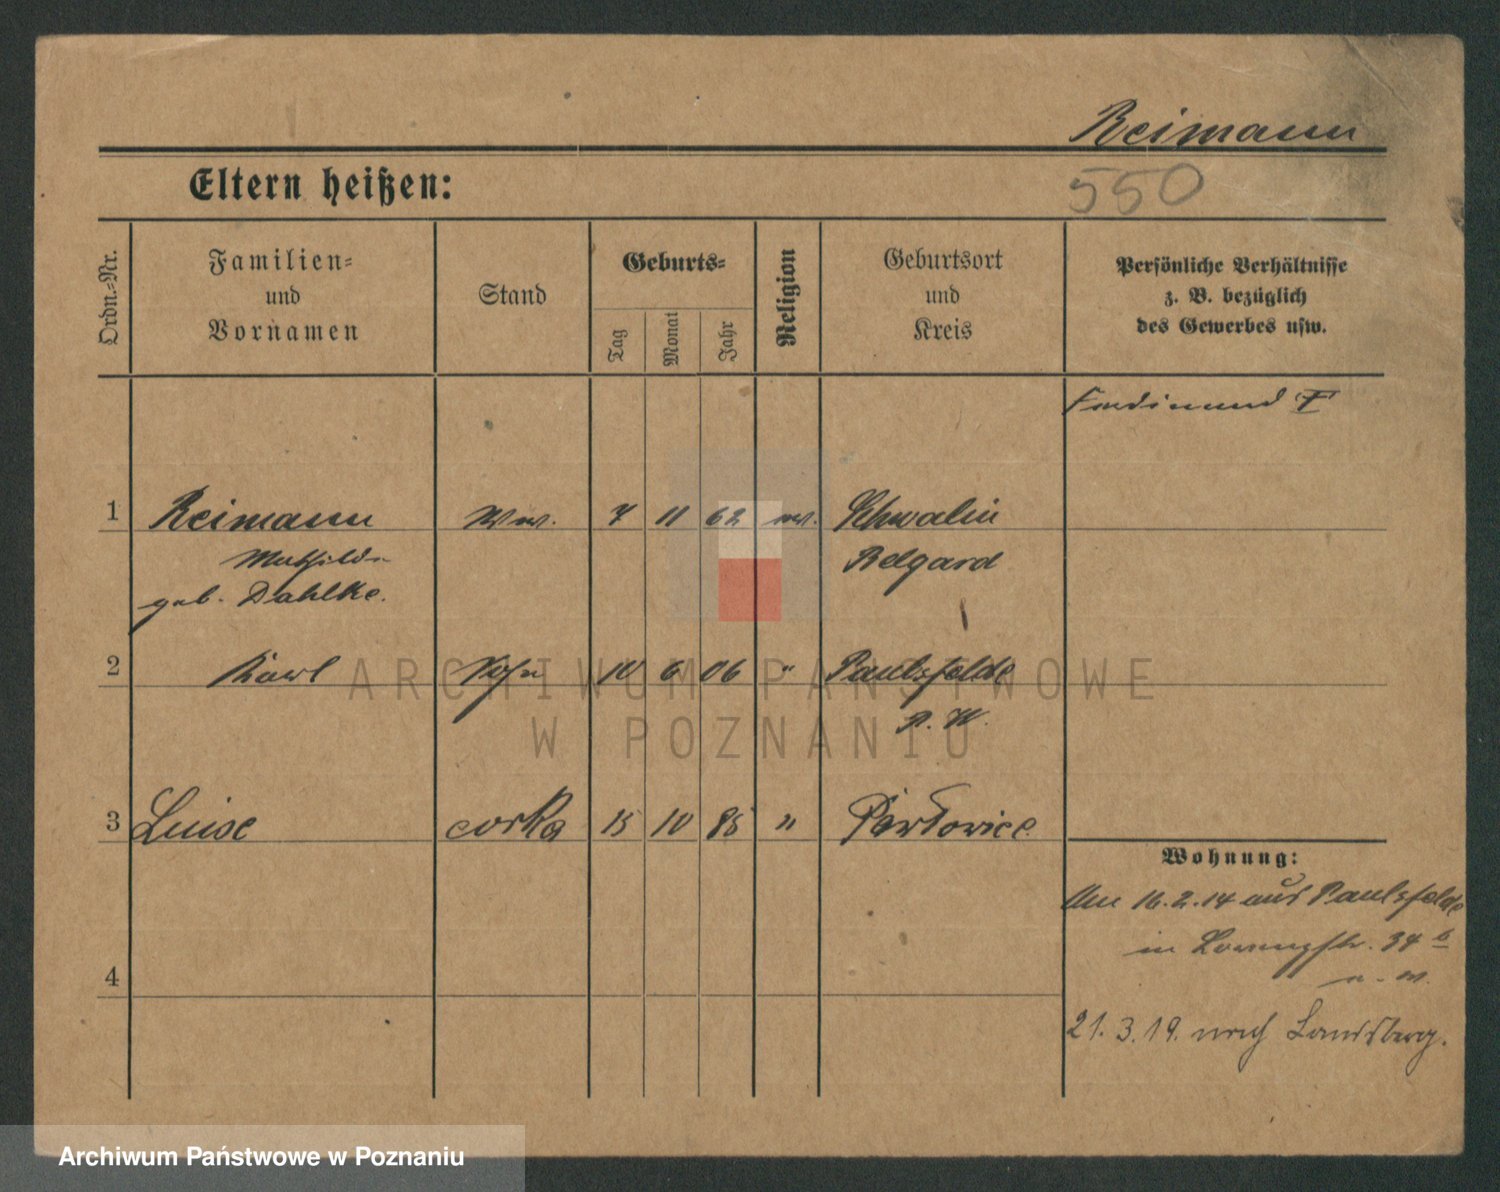 Reimann
Eltern heißen:
550
Ordn.-Nr.
Familien-
und
Vornamen
Stand
Geburts-
Tag
Monat
Jahr
Religion
Geburtsort
und
Kreis
Persönliche Verhältnisse
z. B. bezüglich
des Gewerbes usw.
Ferdinand
1 Reimann Ww. 7 11 62 ev. Schwalin
Mathilde Belgard
geb. Dahlke.
2 Karl Sohn 10 6 06 " Paulsfelde
P. W.
3 Luise corka 15 10 95 " Pawłowice
Wohnung:
Am 16.2.14 aus Paulsfelde
in 34 b
4
21.3.19. nach Landsberg.
ARCHIWUM PAŃSTWOWE
W POZNANIU
Archiwum Państwowe w Poznaniu